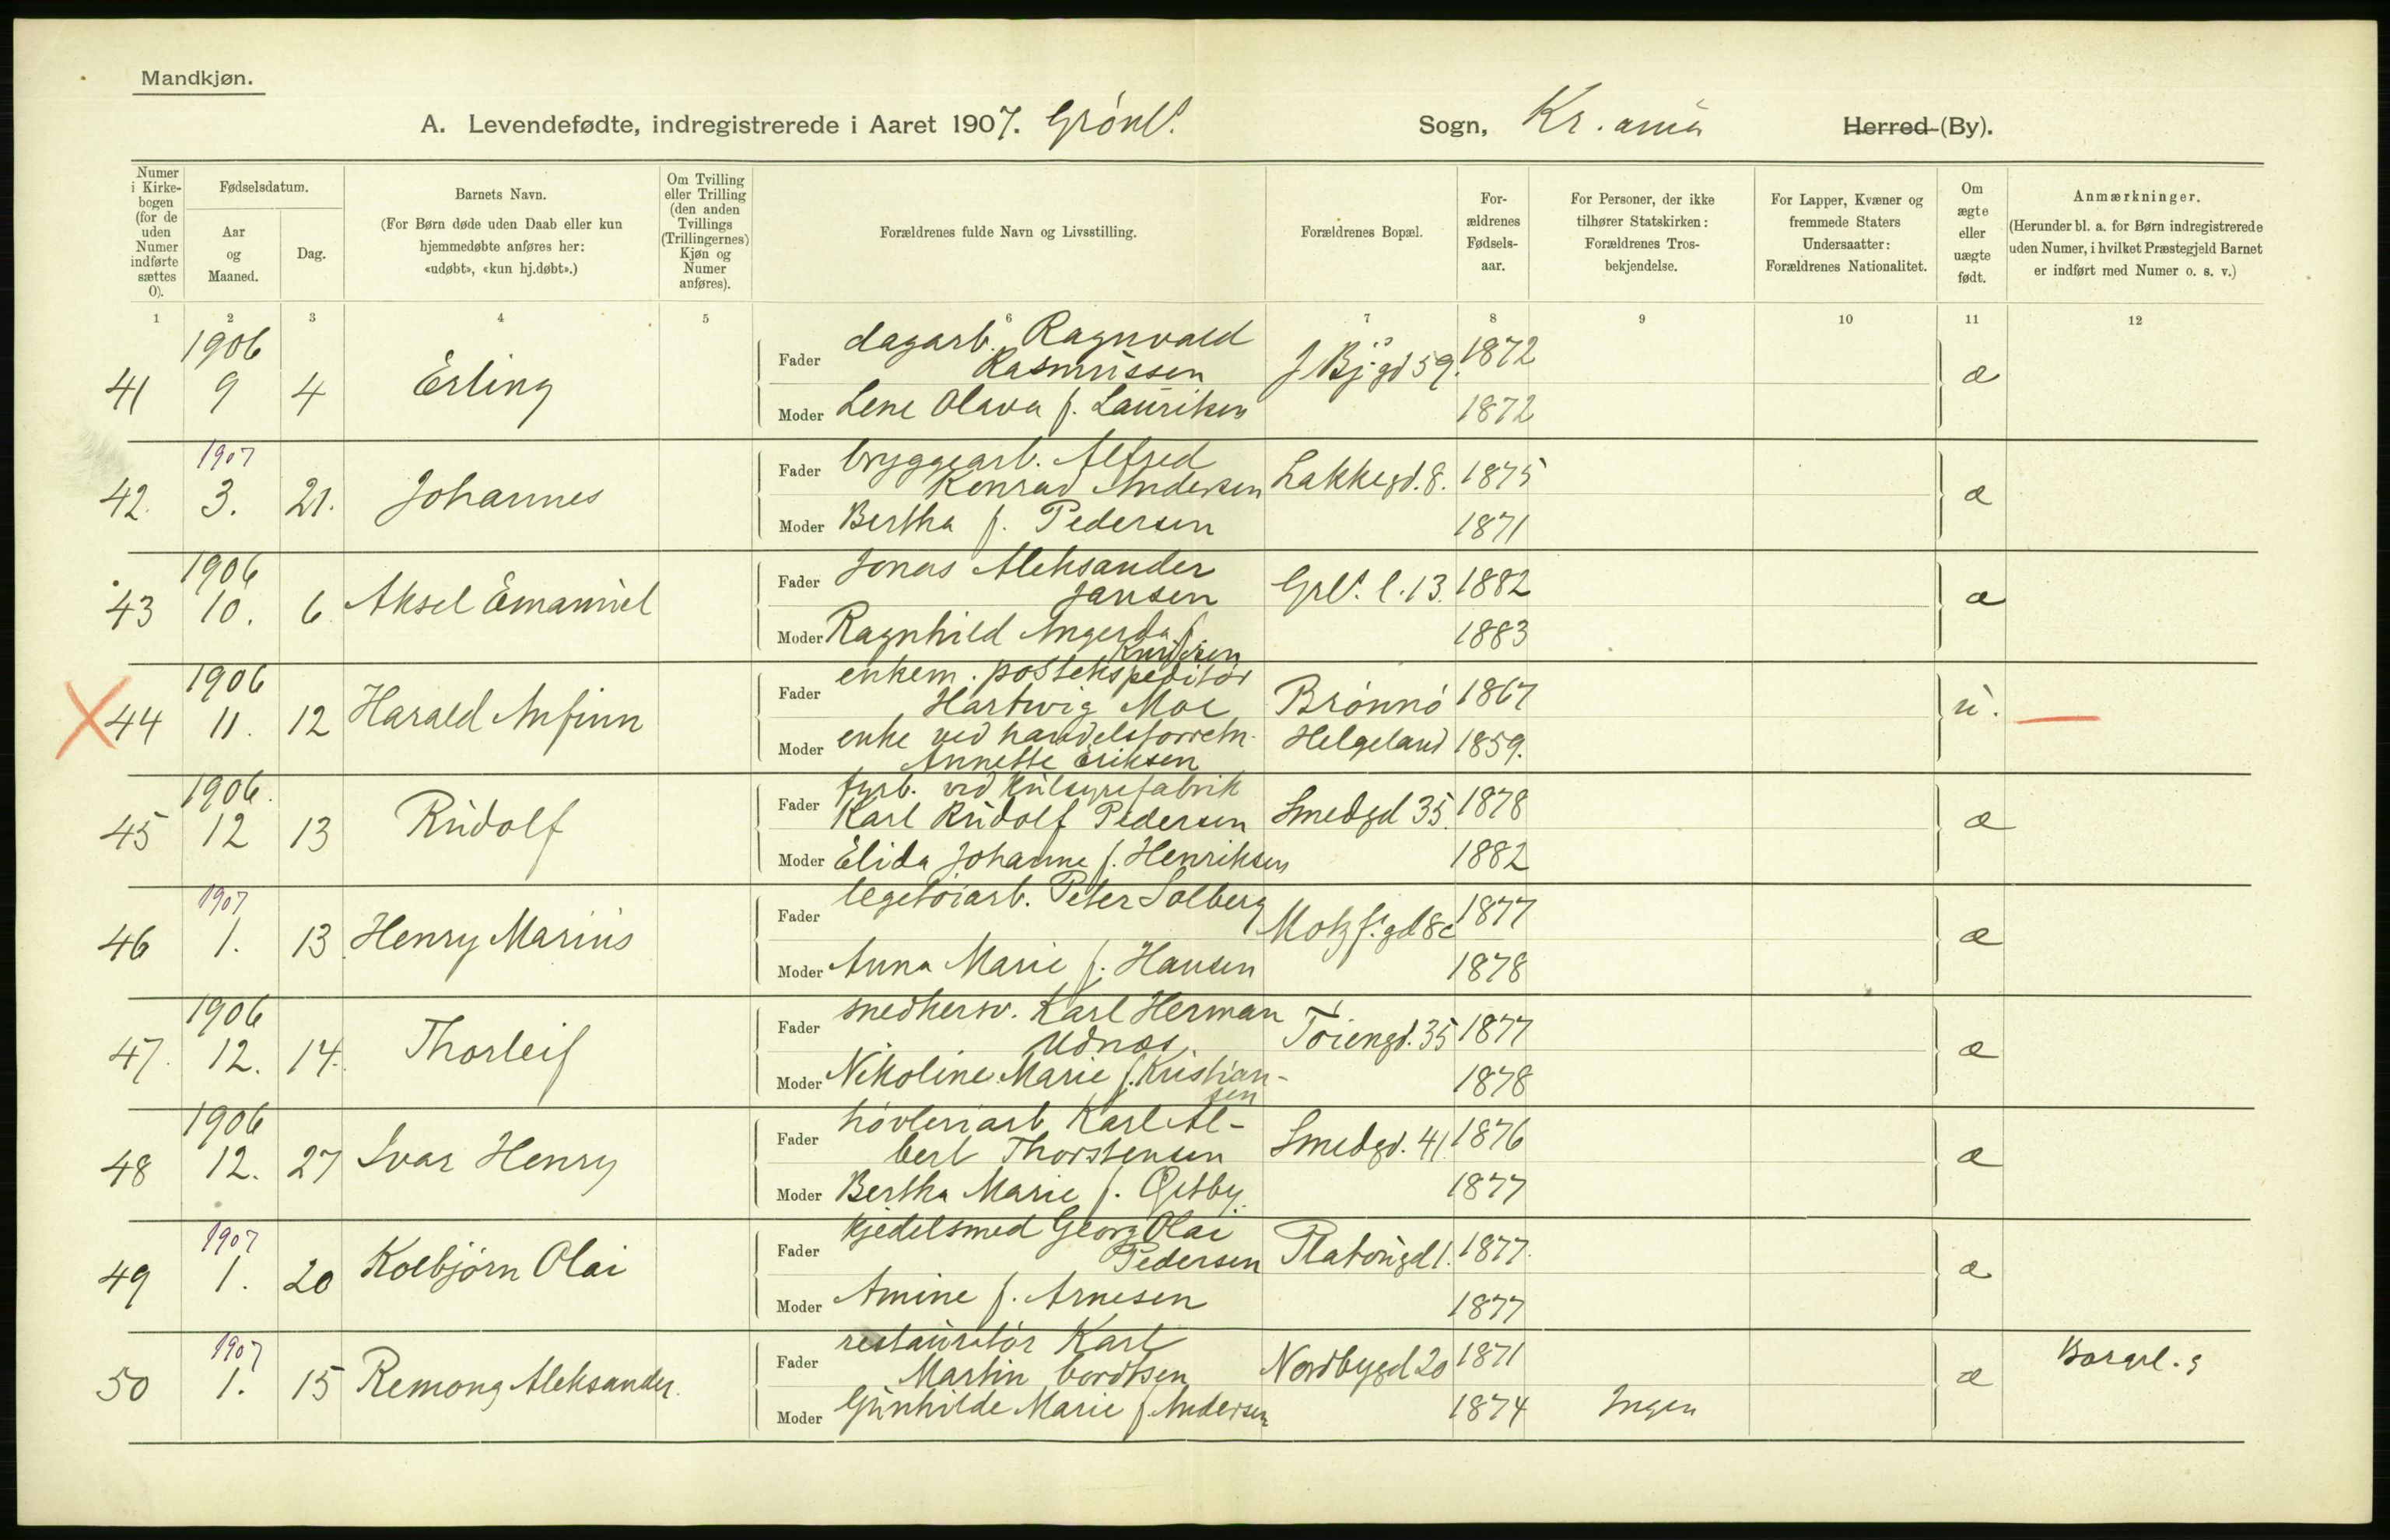 Mandkjøn.
A. Levendefødte, indregistrerede i Aaret 1907. Grønl. Sogn, Kr.ania Herred (By).
Numer i Kirkebogen (for de uden Numer indførte sættes 0).
Fødselsdatum.
Aar og Maaned.
Dag.
Barnets Navn.
(For Børn døde uden Daab eller kun hjemmedøbte anføres her: «udøbt», «kun hj.døbt».)
Om Tvilling eller Trilling (den anden Tvillings (Trillingernes) Kjøn og Numer anføres).
Forældrenes fulde Navn og Livsstilling.
Forældrenes Bopæl.
Forældrenes Fødselsaar.
For Personer, der ikke tilhører Statskirken: Forældrenes Trosbekjendelse.
For Lapper, Kvæner og fremmede Staters Undersaatter: Forældrenes Nationalitet.
Om ægte eller uægte født.
Anmærkninger.
(Herunder bl. a. for Børn indregistrerede uden Numer, i hvilket Præstegjeld Barnet er indført med Numer o. s. v.)
1 2 3 4 5 6 7 8 9 10 11 12
1906
41 9 4 Erling
Fader dagarb. Ragnvald
Rasmussen J Bj gd 59. 1872 æ
Moder Lene Olava f. Lauriksen 1872
1907
42. 3. 21. Johannes
Fader bryggearb. Alfred
Konrad Andersen Lakkegd. 8. 1875 æ
Moder Bertha f. Pedersen 1871
1906
43 10. 6 Aksel Emanuel
Fader Jonas Aleksander
Jansen Grl. l. 13. 1882 æ
Moder Ragnhild Ingerda f.
Knudsen 1883
1906
44 11. 12 Harald Anfinn
Fader enkem. postekspeditør
Hartwig Moe Brønnø 1867 u.
Moder enke ved handelsforretn.
Annette Eriksen Helgeland 1859.
1906.
45 12 13 Rudolf
Fader fyrb. ved kulsyrefabrik
Karl Rudolf Pedersen Smedgd 35. 1878 æ
Moder Elida Johanne f. Henriksen 1882
1907
46 1. 13. Henry Marius
Fader legetøiarb. Peter Solberg Motzf. gd 8c 1877 æ
Moder Anna Marie f. Hansen 1878
1906
47. 12. 14. Thorleif
Fader snedkersv. Karl Herman
Udnæs Tøiengd. 35 1877 æ
Moder Nikoline Marie f. Kristian-
sen 1878
1906
48 12. 27 Ivar Henry
Fader høvleriarb. Karl Al-
bert Thorstensen Smedgd. 41 1876 æ
Moder Bertha Marie f. Østby 1877
1907
49 1. 20 Kolbjørn Olai
Fader kjedelsmed Georg Olai
Pedersen Platougd 1. 1877. æ
Moder Amine f. Arnesen 1877
1907
50 1. 15 Remong Aleksander.
Fader restauratør Karl
Martin Cordtsen Nordbygd 20 1871 æ
Moder Gunhilde Marie f. Andersen 1874 Ingen